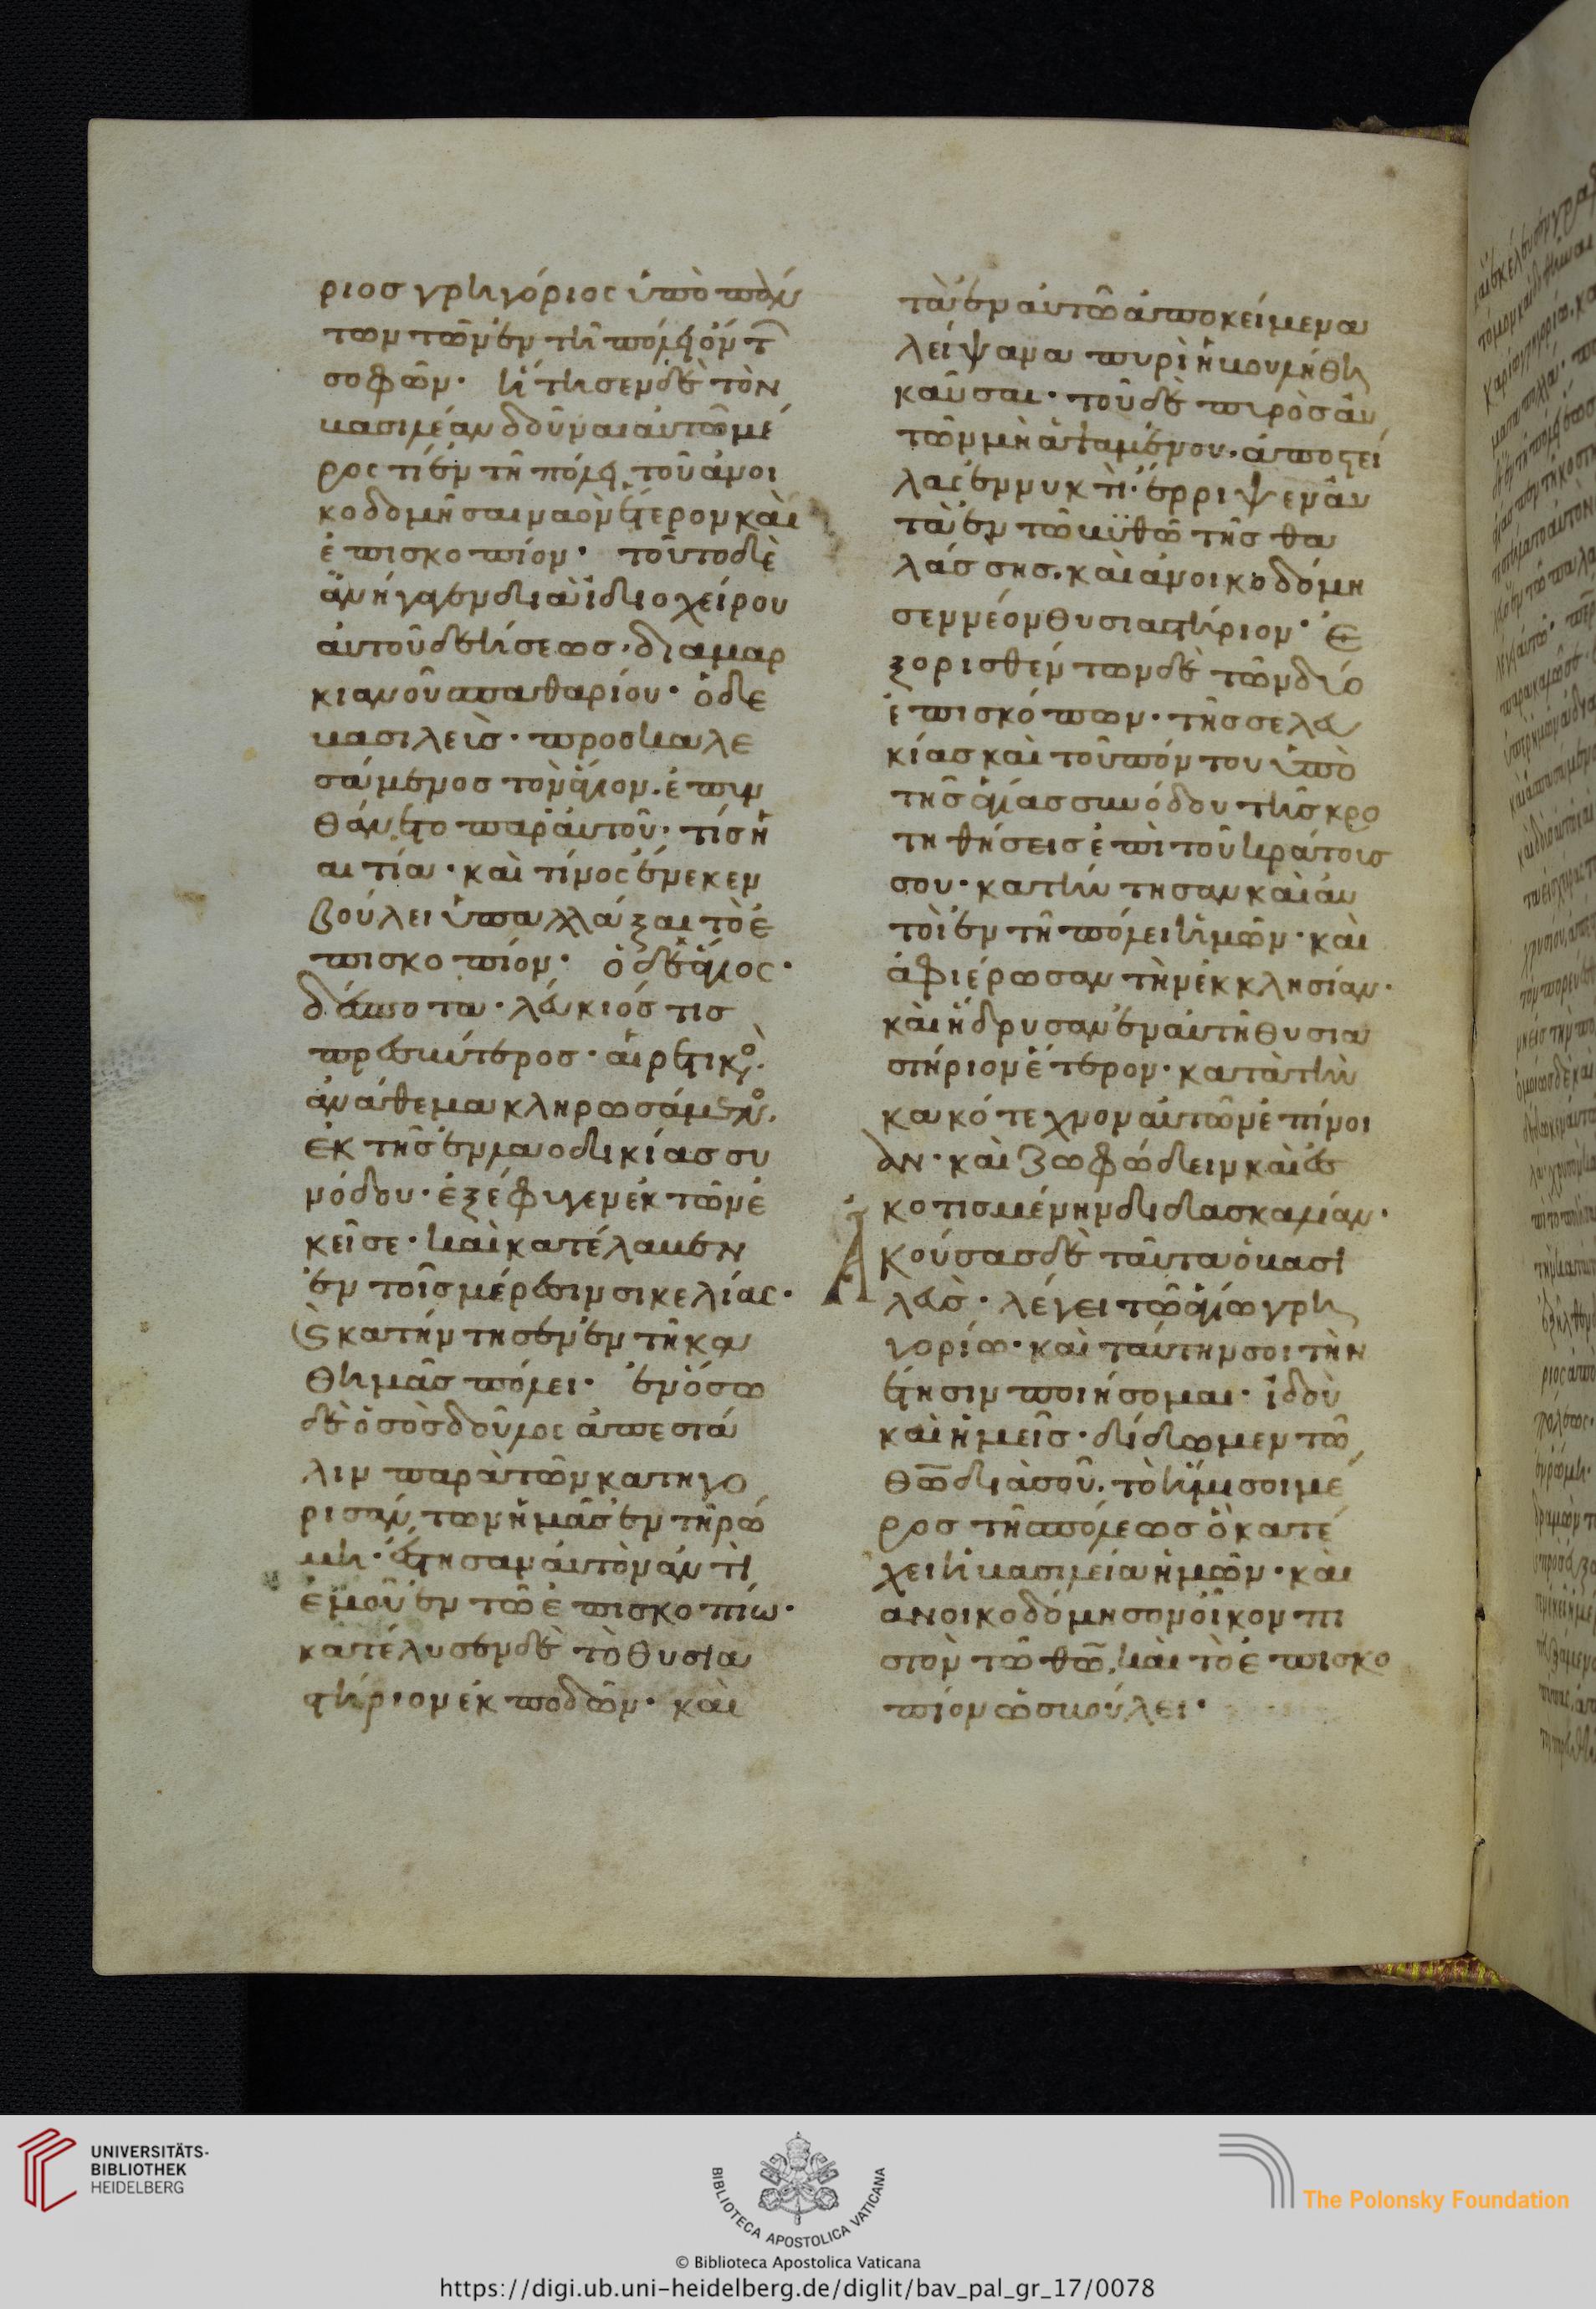 ριος γρηγόριος ὑπὸ πάν
των τῶν ἐν τῆ πόλει ὄντ
σοφῶν· ἠτησεν δὲ τὸν
βασιλέαν δοῦναι αὐτῶ μέ
ρος τί ἐν τῆ πόλει τοῦ ἀνοι
κοδομῆσαι ναὸν ἕτερον καὶ
ἐπισκοπίον· τοῦτο δὲ
ἀνήγαγεν διὰ ἰδιοχείρου
αὐτοῦ δεήσεως· διὰ μαρ
κιανοῦ σπαθαρίου· ὁ δὲ
βασιλεὺς· προσκαλε
σάμενος τὸν ἅγιον· ἐπυν
θάνετο παρ αὐτοῦ· τίς ἡ
αἰτία· καὶ τίνος ἕνεκεν
βούλει ὑπαλλάξαι τὸ ἐ
πισκοπίον· ὁ δὲ ἅγιος·
δέσποτα· λεύκιός τις
πρεσβύτερος· αἱρετικὸ
ἀνάθεμα κληρωσάμενο
ἐκ τῆς ἐν λαοδικίας συ
νόδου· ἐξέφυγεν ἐκ τῶν ἐ
κεῖσε· καὶ κατέλαβεν
ἐν τοῖς μέρεσιν σικελίας·
καὶ κατήντησεν ἐν τῆ κα
θημᾶς πόλει· ἐν ὅσω
δὲ ὁ σὸς δοῦλος ἀπεστά
λιν παρὰ τῶν κατηγο
ρισάντων ἡμᾶς ἐν τῆ ρώ
μη· ἔστησαν αὐτὸν ἀντὶ
ἐμοῦ ἐν τῶ ἐπισκοπίω·
κατέλυσεν δὲ τὸ θυσια
στήριον ἐκ ποδῶν· καὶ
τὰ ἐν αὐτῶ ἀποκείμενα
λείψανα πυρὶ ἠβουλήθη
καῦσαι· τοῦ δὲ πυρὸς αὐ
τῶν μὴ ἁψαμένου· ἀποστεί
λας ἐν νυκτὶ· ἔρριψεν αὐ
τὰ ἐν τῶ βυθῶ τῆς θα
λάσσης· καὶ ἀνοικοδόμη
σεν νέον θυσιαστήριον· ἐ
ξορισθέντων δὲ τῶν δύο
ἐπισκόπων· τῆς σελευ
κίας καὶ τοῦ πόντου ὑπὸ
τῆς ἁγίας συνόδου τῆς κρο
τηθήσεις ἐπὶ τοῦ κράτους
σου· κατήντησαν καὶ αὐ
τοὶ ἐν τῆ πόλει ἡμῶν· καὶ
ἀφιέρωσαν τὴν ἐκκλησίαν·
καὶ ἥδρυσαν ἐν αὐτῆ θυσια
στήριον ἕτερον· κατὰ τὴν
κακότεχνον αὐτῶν ἐπίνοι
αν· καὶ ζωφώδειν καὶ ἐσ
κοτισμένην διδασκαλίαν·
Ἀκούσας δὲ ταῦτα ὁ βασι
λεὺς· λέγει τῶ ἁγίω γρη
γορίω· καὶ ταύτην σοι τὴν
ἔτησιν ποιήσομαι· ἰδοὺ
καὶ ἡμεῖς· δίδωμεν τῶ
θω διὰ σοῦ· τὸ ἥμισοι μέ
ρος τῆς πόλεως ὃ κατέ
χει ἡ βασιλεία ἡμῶν· καὶ
ἀνοικοδόμησον οἶκον πι
στὸν τῶ θω, καὶ τὸ ἐπισκο
πίον ὡς βούλει·
UNIVERSITÄTS-
BIBLIOTHEK
HEIDELBERG
BIBLIOTECA APOSTOLICA VATICANA
The Polonsky Foundation
© Biblioteca Apostolica Vaticana
https://digi.ub.uni-heidelberg.de/diglit/bav_pal_gr_17/0078